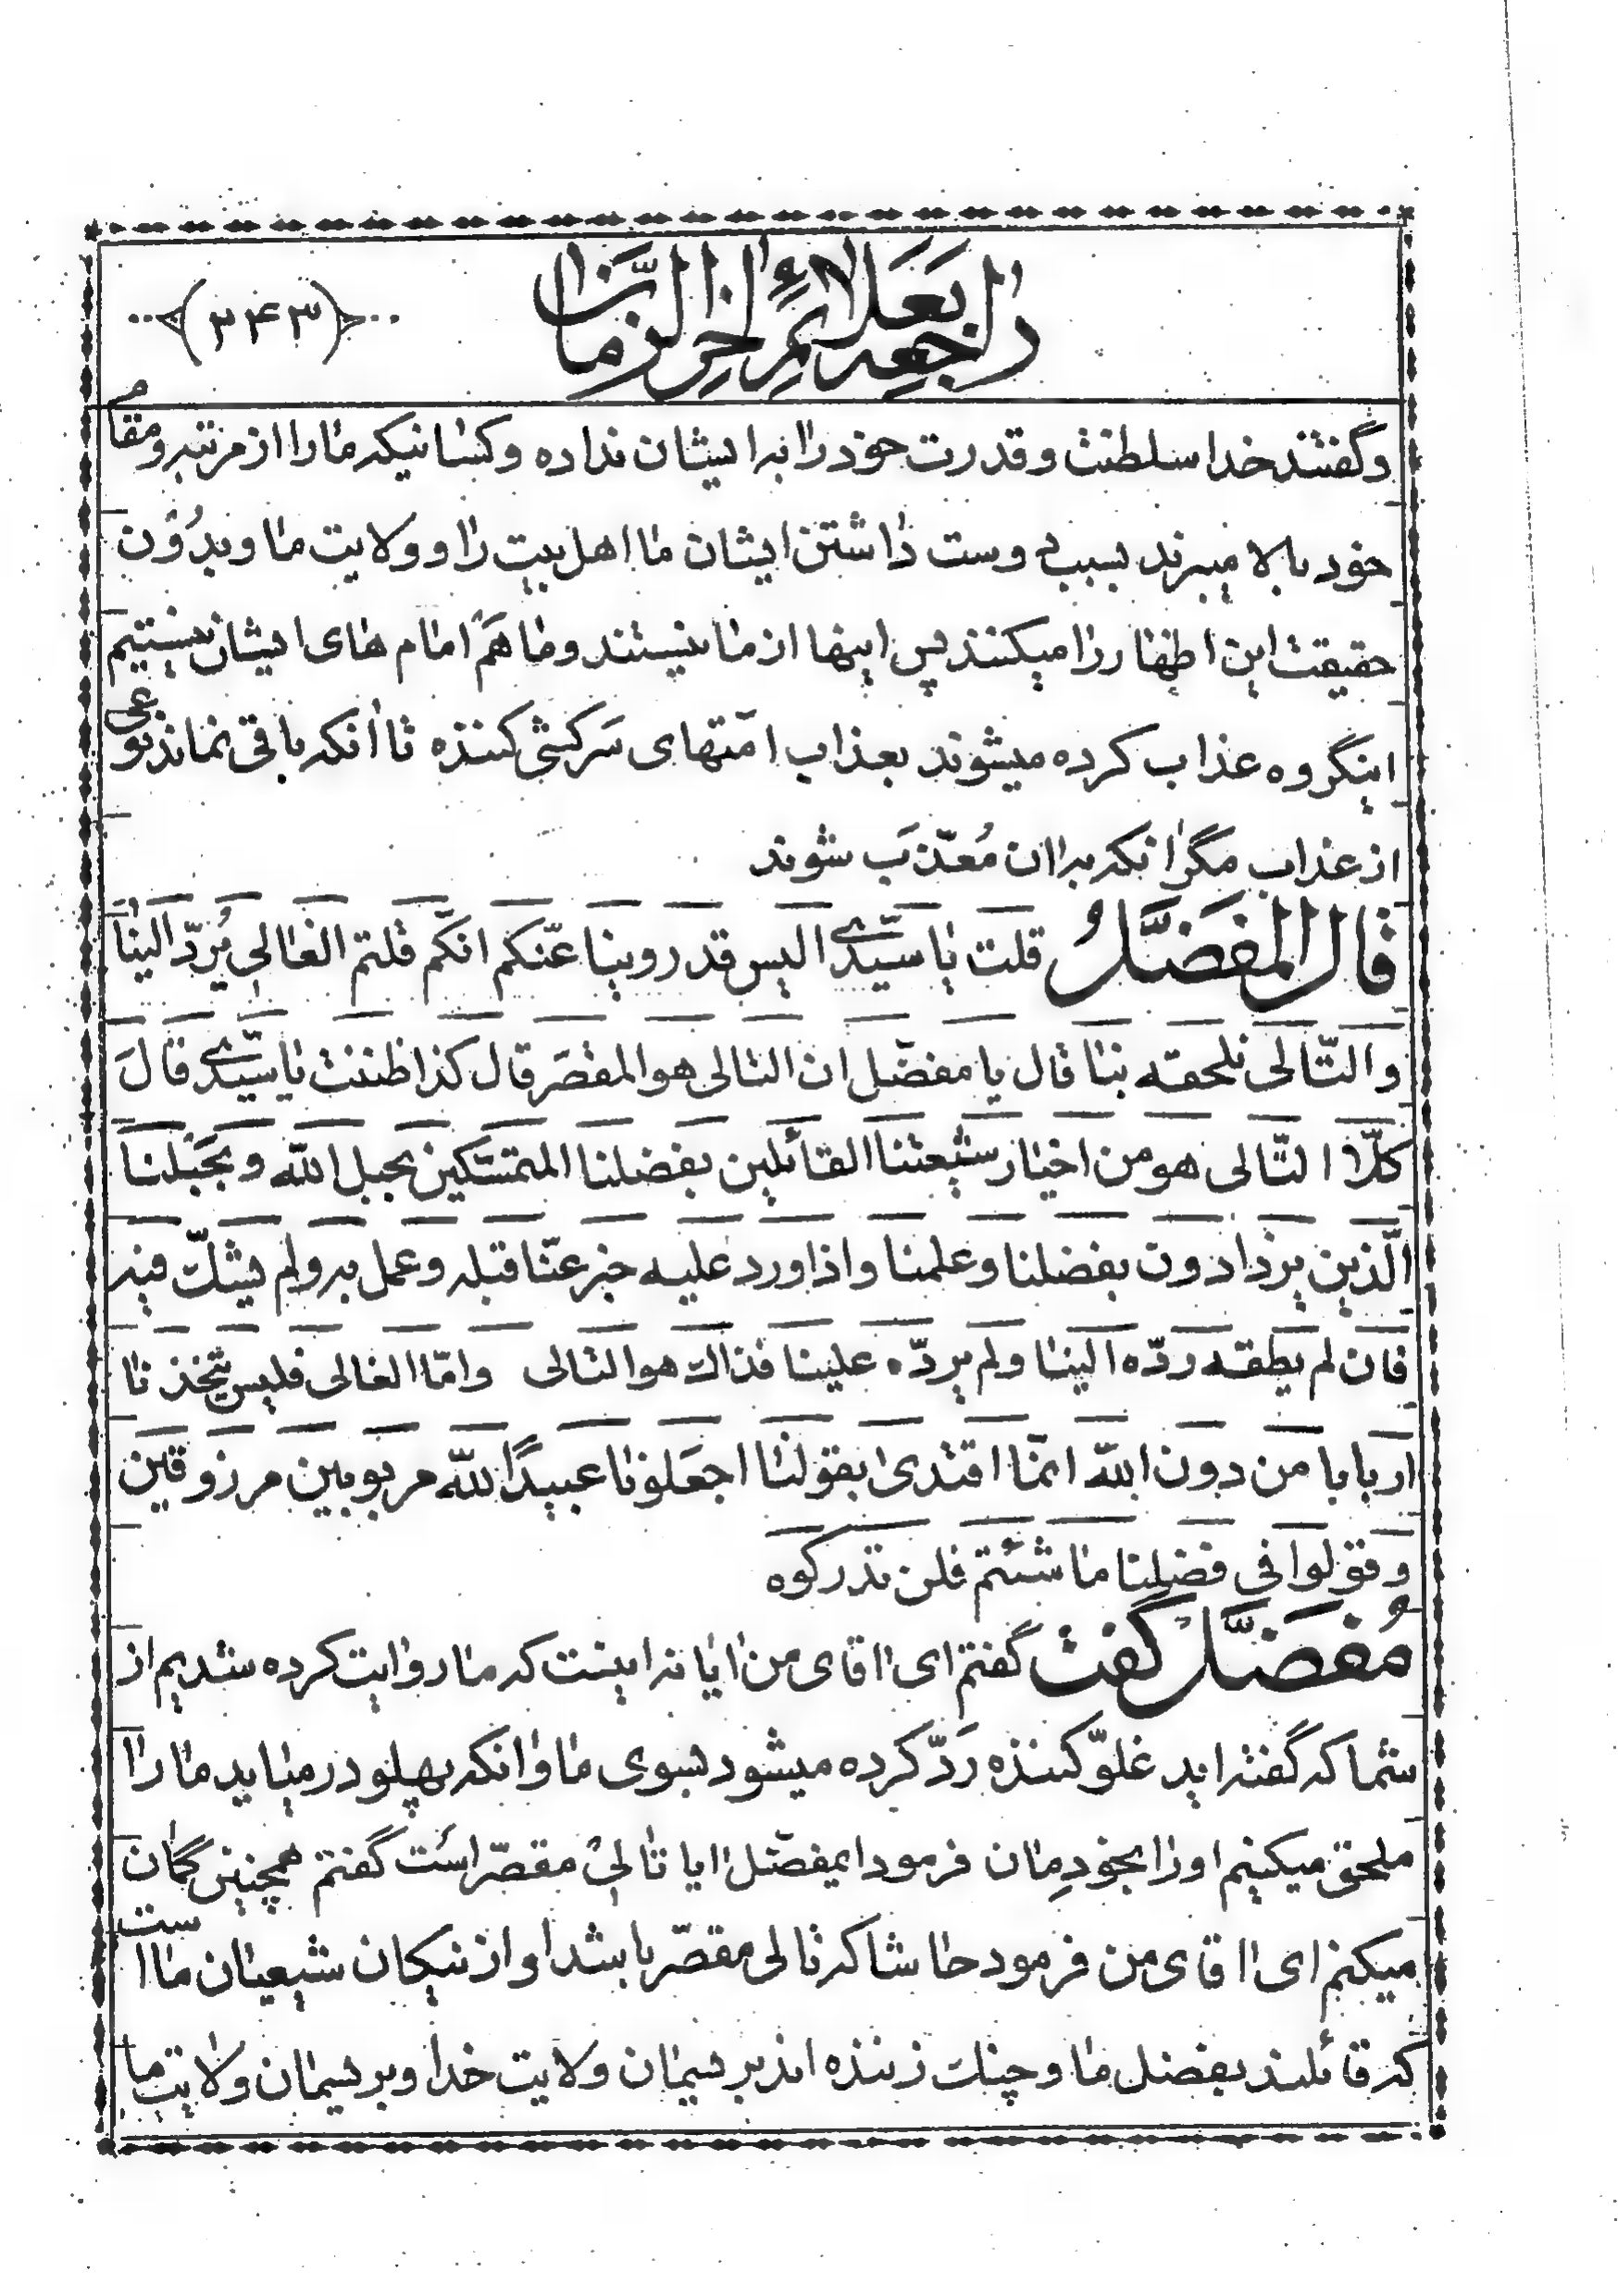 راجعه بعلائم اخر الزمان
(۲۴۳)
وگفتند خدا سلطنت و قدرت خود را به ایشان نداده و کسانیکه ما را از مرتبه و مقام
خود بالا میبرند بسبب دوست داشتن ایشان ما اهل بیت را و ولایت ما و بدُوْن
حقیقت این اظهار را میکنند پس اینها از ما نیستند و ما هَمْ امام های ایشان نیستیم
اینگروه عذاب کرده میشوند بعذاب امّتهای سَرکشی کننده تا اٰنکه باقی نماند نوعی
از عذاب مگر اٰنکه به اان مُعذّبَ شوند
قال المفضّلُ قلت یا سیّدی الیس قد روینا عنّکم انّکم قلتم الغالی یُردّ الینا
و التّالی نلحقه بنا قال یا مفضّل ان التالی هو المقصّر قال کذا ظننت یا سیّدی قالَ
کلّا التّالی هو من اخیار شیعتنا القائلین بفضلنا المتمسّکین بحبل اللّه و بحَبلنا
الّذین یزدادون بفضلنا و علمنا و اذا ورد علیه خبر عنّا قبله و عمل به و لم یشکّ فیه
فان لم یطقه ردّه الینا و لم یردّه علینا فذاک هو التالی و امّا الغالی فلیس یتّخذنا
اربابا من دون اللّه انّما اقتدی بقولنا اجعَلونا عبیدًا للّه مربوبین مرزوقین
و قولوا فی فضلنا ما شئتم فلن تدرکوه
مُفضّل گفت گفتم ای ااقای من اٰیا نه اینست که ما روایت کرده شدیم از
شما که گفته اید غلوّ کننده رَدّ کرده میشود بسوی ما و اٰنکه پهلو در میاید ما را
ملحق میکنیم او را بخودِمان فرمود ایمفضّل اٰیا تالیْ مقصّر است گفتم همچنین گمان
میکنم ای ااقای من فرمود حاشا که تالی مقصّر باشد او از نیکان شیعیان ما است
که قائلند بفضل ما و چنک زننده اند بریسمان ولایت خدا و بریسمان ولایت ما